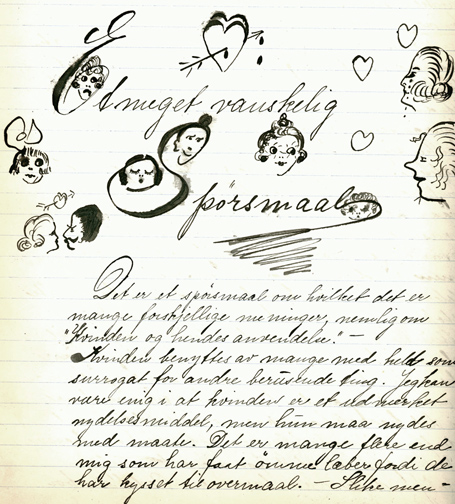 Et meget vanskelig
Spørsmaal
Det er et spørsmaal om hvilket det er
mange forskjellige meninger, nemlig om
"Kvinden og hendes anvendelse." —
Kvinden benyttes av mange med held som
surrogat for andre berusende ting. Jeg kan
være enig i at kvinden er et udmerket
nydelsesmiddel, men hun maa nydes
med maate. Det er mange flere end
mig som har faat ømme læber fordi de
har kysset til overmaal. — Slike men-